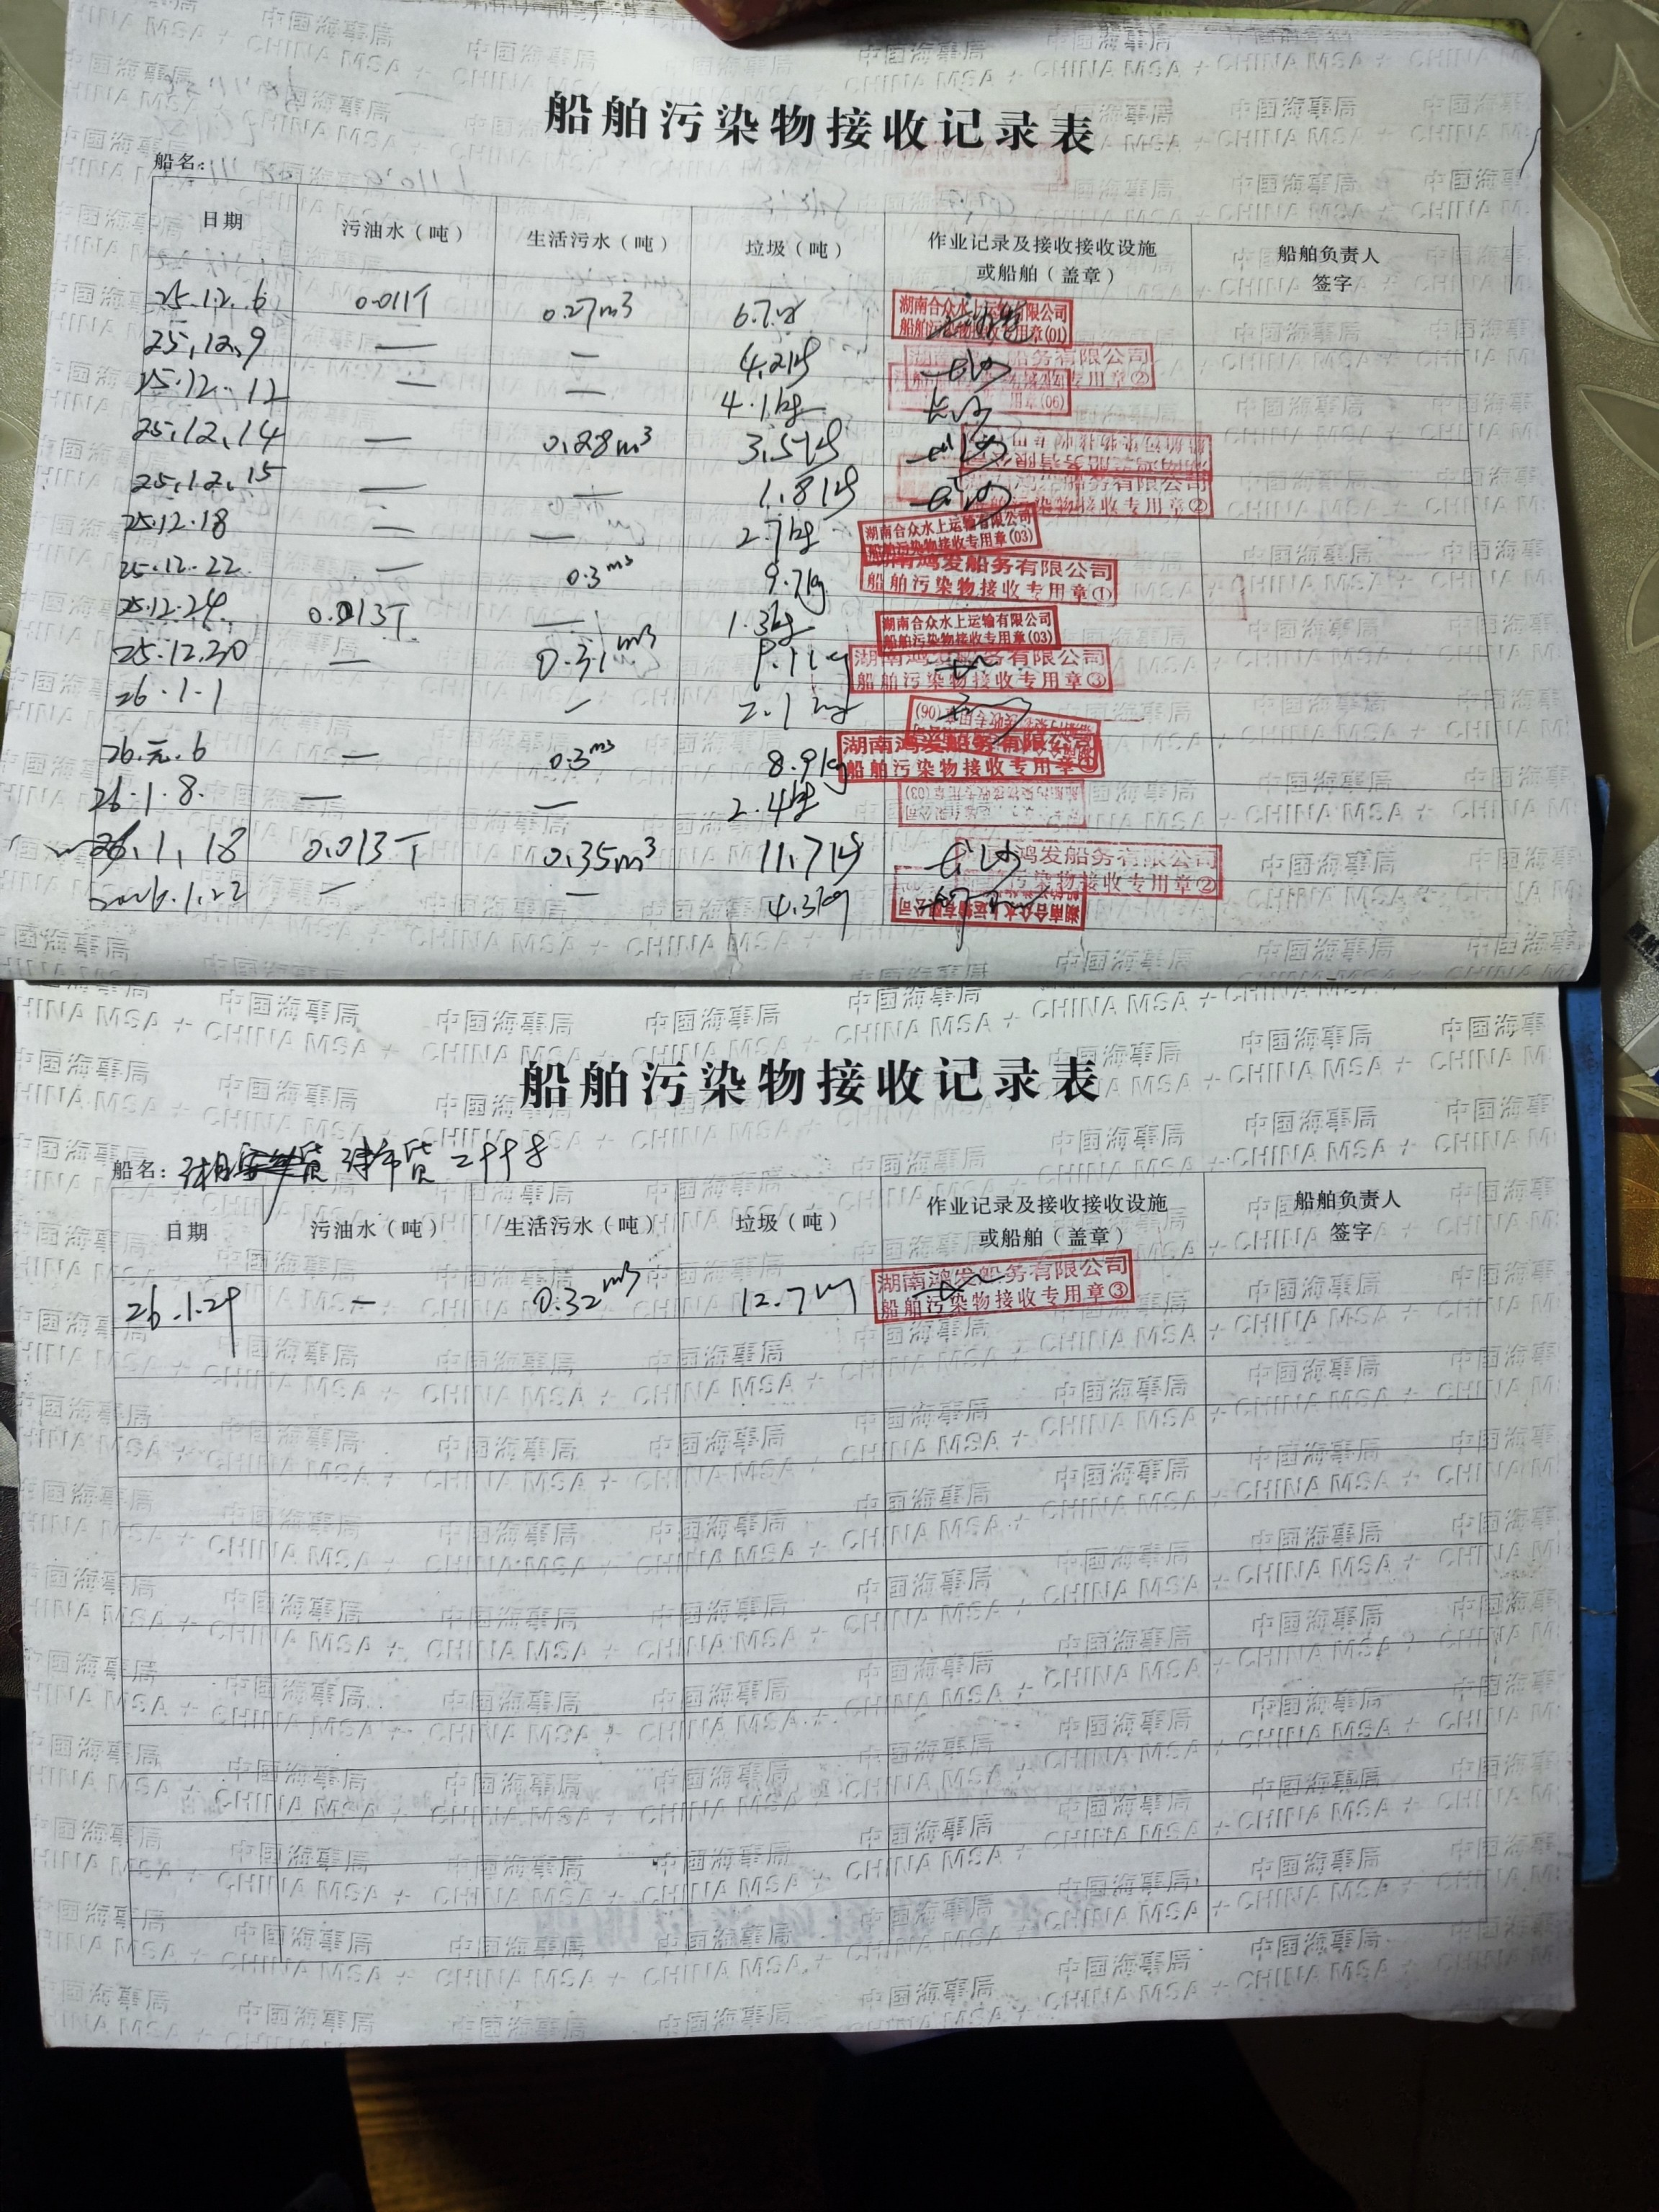 船舶污染物接收记录表
船名：
日期 污油水（吨） 生活污水（吨） 垃圾（吨） 作业记录及接收接收设施或船舶（盖章） 船舶负责人签字
25.12.6 0.011T 0.27m³ 6.7 湖南合众水上运输有限公司 船舶污染物接收专用章(01)
25.12.9 — — 4.2kg 船务有限公司 专用章②
25.12.12 — — 4.1kg 用章(06)
25.12.14 — 0.28m³ 3.5kg
25.12.15 — — 1.8kg 船务有限公司 污染物接收专用章②
25.12.18 — — 2.7kg 湖南合众水上运输有限公司 船舶污染物接收专用章(03)
25.12.22 — 0.3m³ 9.7kg 湖南鸿发船务有限公司 船舶污染物接收专用章①
25.12.24 0.013T — 1.3kg 湖南合众水上运输有限公司 船舶污染物接收专用章(03)
25.12.30 — 0.31m³ 9.1kg 湖南鸿发船务有限公司 船舶污染物接收专用章③
26.1.1 — 2.1kg (06)
26.元.6 — 0.3m³ 8.9kg 湖南鸿发船务有限公司 船舶污染物接收专用章
26.1.8. — — 2.4kg (03)
26.1.18 0.013T 0.35m³ 11.7kg 鸿发船务有限公司 污染物接收专用章②
2026.1.22 — — 4.3kg 湖南合众水上运输有限公司
船舶污染物接收记录表
船名： 津市货
日期 污油水（吨） 生活污水（吨） 垃圾（吨） 作业记录及接收接收设施或船舶（盖章） 船舶负责人签字
26.1.29 — 0.32m³ 12.7kg 湖南鸿发船务有限公司 船舶污染物接收专用章③